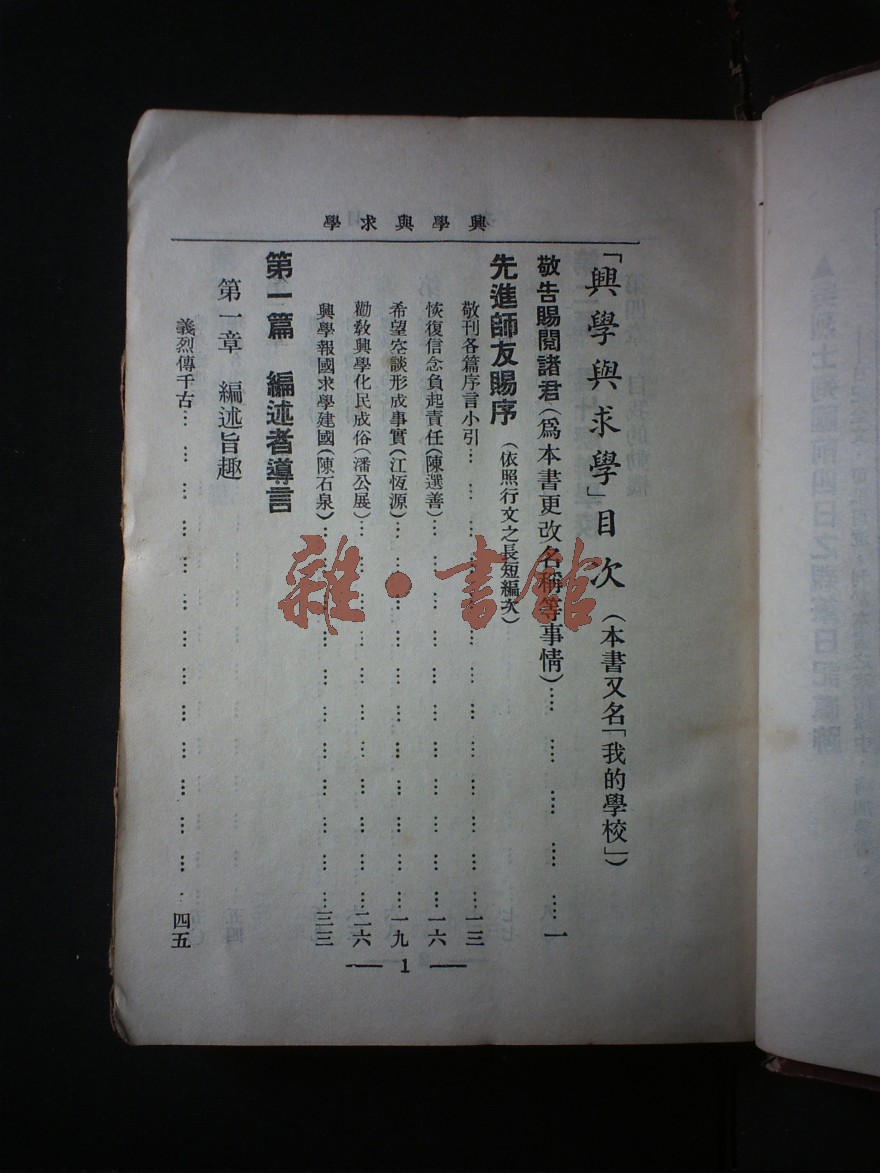 興學與求學
「興學與求學」目次（本書又名「我的學校」）
敬告賜閱諸君（爲本書更改名稱等事情）…………一
先進師友賜序（依照行文之長短編次）
敬刊各篇序言小引…………一三
恢復信念負起責任（陳選善）…………一六
希望空談形成事實（江恆源）…………一九
勸敎興學化民成俗（潘公展）…………二六
興學報國求學建國（陳石泉）…………三三
第一篇 編述者導言
第一章 編述旨趣
義烈傳千古…………四五
1
雜·書館